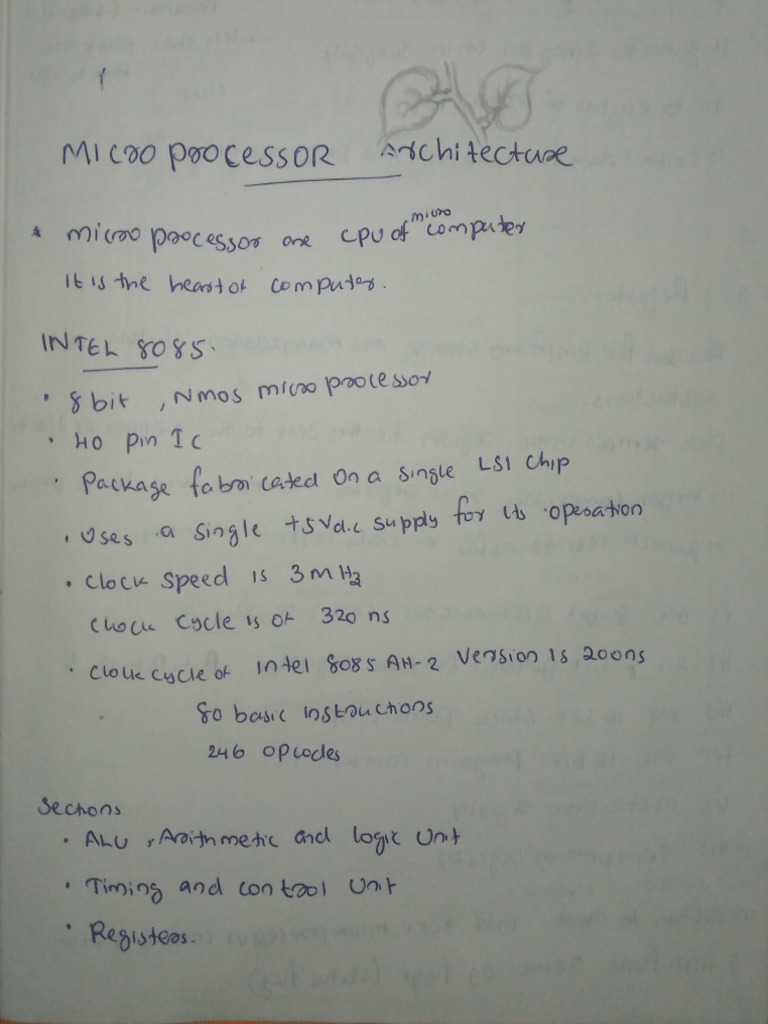 1
MICROPROCESSOR Architecture
microprocessor are CPU of micro computer
It is the heart of computer.
INTEL 8085.
• 8 bit , Nmos microprocessor
• 40 pin Ic
• Package fabricated on a single LSI chip
• Uses a single +5Vd.c supply for its operation
• clock speed is 3MHz
clock cycle is of 320 ns
• clock cycle of Intel 8085 AH-2 Version is 200ns
80 basic instructions
246 opcodes
Sections
• ALU , Arithmetic and logic Unit
• Timing and control Unit
• Registers.